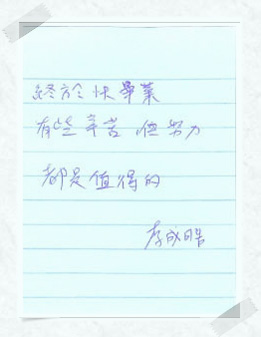 終於快畢業
有些辛苦 但努力
都是值得的
李成晧